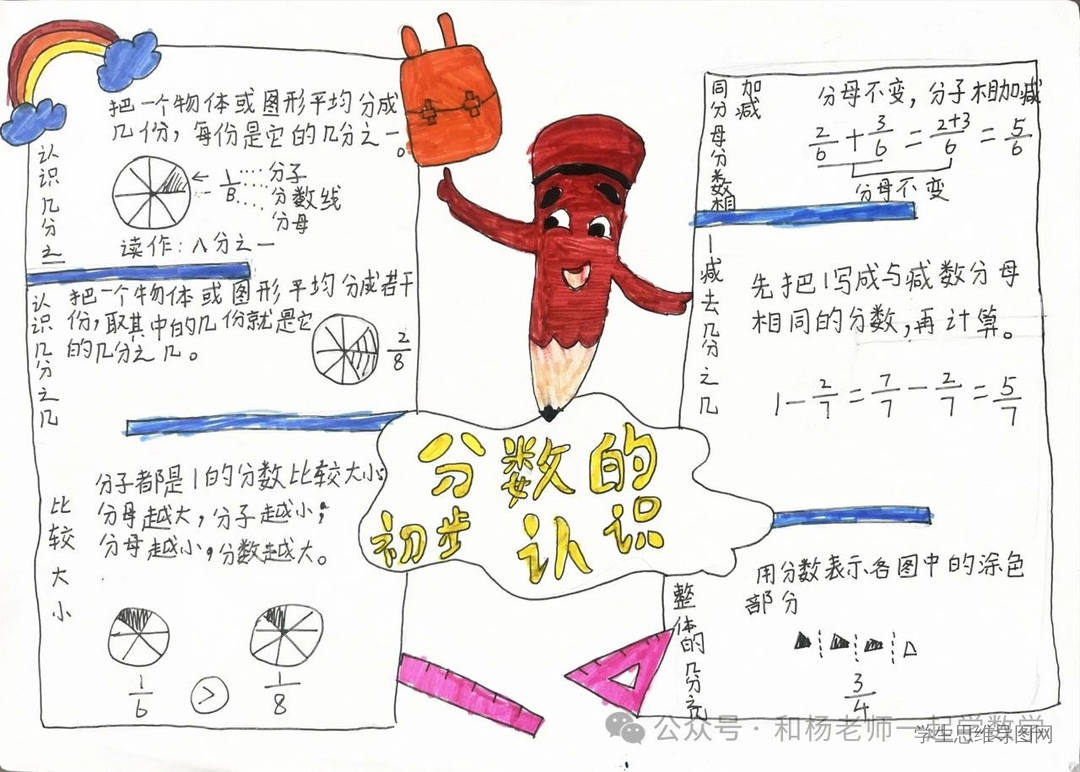 把一个物体或图形平均分成
几份，每份是它的几分之一。
认识几分之一
1/8
分子
分数线
分母
读作：八分之一
认识几分之几
把一个物体或图形平均分成若干
份，取其中的几份就是它
的几分之几。
2/8
比较大小
分子都是1的分数比较大小：
分母越大，分子越小；
分母越小，分数越大。
1/6 > 1/8
分数的
初步认识
同分母分数相
加减
分母不变，分子相加减
2/6 + 3/6 = 2+3/6 = 5/6
分母不变
1减去几分之几
先把1写成与减数分母
相同的分数，再计算。
1 - 2/7 = 7/7 - 2/7 = 5/7
整体的几分之
用分数表示各图中的涂色
部分
3/4
公众号·和杨老师一起学数学
学生思维导图网